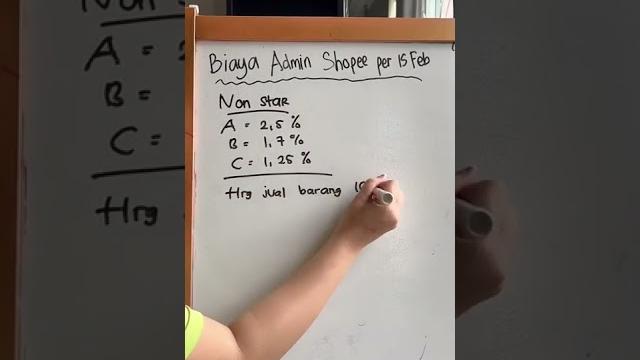 Biaya Admin Shopee per 15 Feb
Non Star
A = 2,5 %
B = 1,7 %
C = 1,25 %
Hrg jual barang